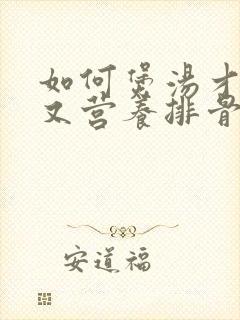 如何煲汤才
又营养排骨
安道福